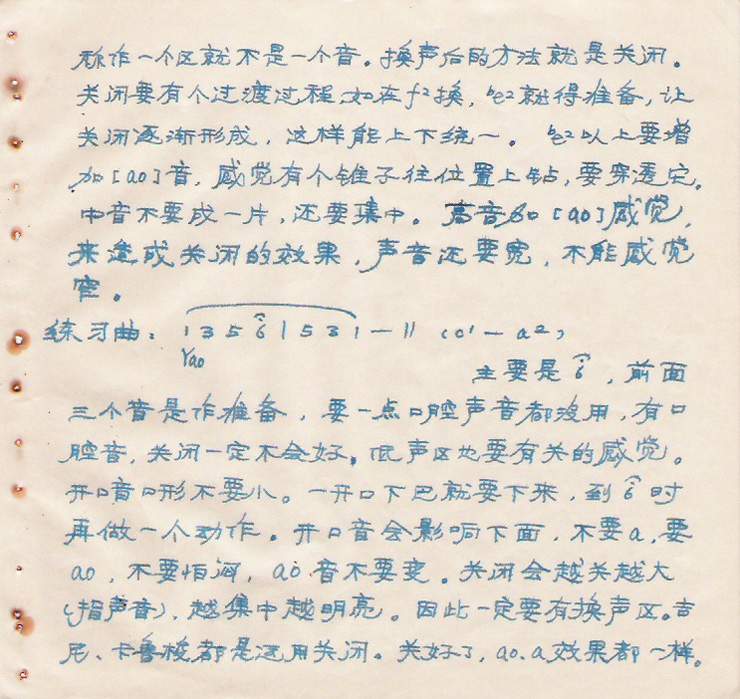 称作一个区就不是一个音。换声后的方法就是关闭。
关闭要有个过渡过程，如在f²换，ᵇe²就得准备，让
关闭逐渐形成，这样能上下统一。ᵇe²以上要增
加[ao]音，感觉有个锥子往位置上钻，要穿透它。
中音不要成一片，还要集中。高音如[ao]感觉，
来造成关闭的效果，声音还要宽，不能感觉
窄。
练习曲：1 3 5 6 1 5 3 1 — || (c' — a²)
Yao
主要是6，前面
三个音是作准备，要一点口腔声音都没用，有口
腔音，关闭一定不会好，低声区也要有关的感觉。
开口音口形不要小。一开口下巴就要下来，到6时
再做一个动作。开口音会影响下面，不要a，要
ao，不要怕闷，ao音不要变。关闭会越关越大
（指声音），越集中越明亮。因此一定要有换声区。吉
尼、卡鲁梭都是运用关闭。关好了，ao.a效果都一样。